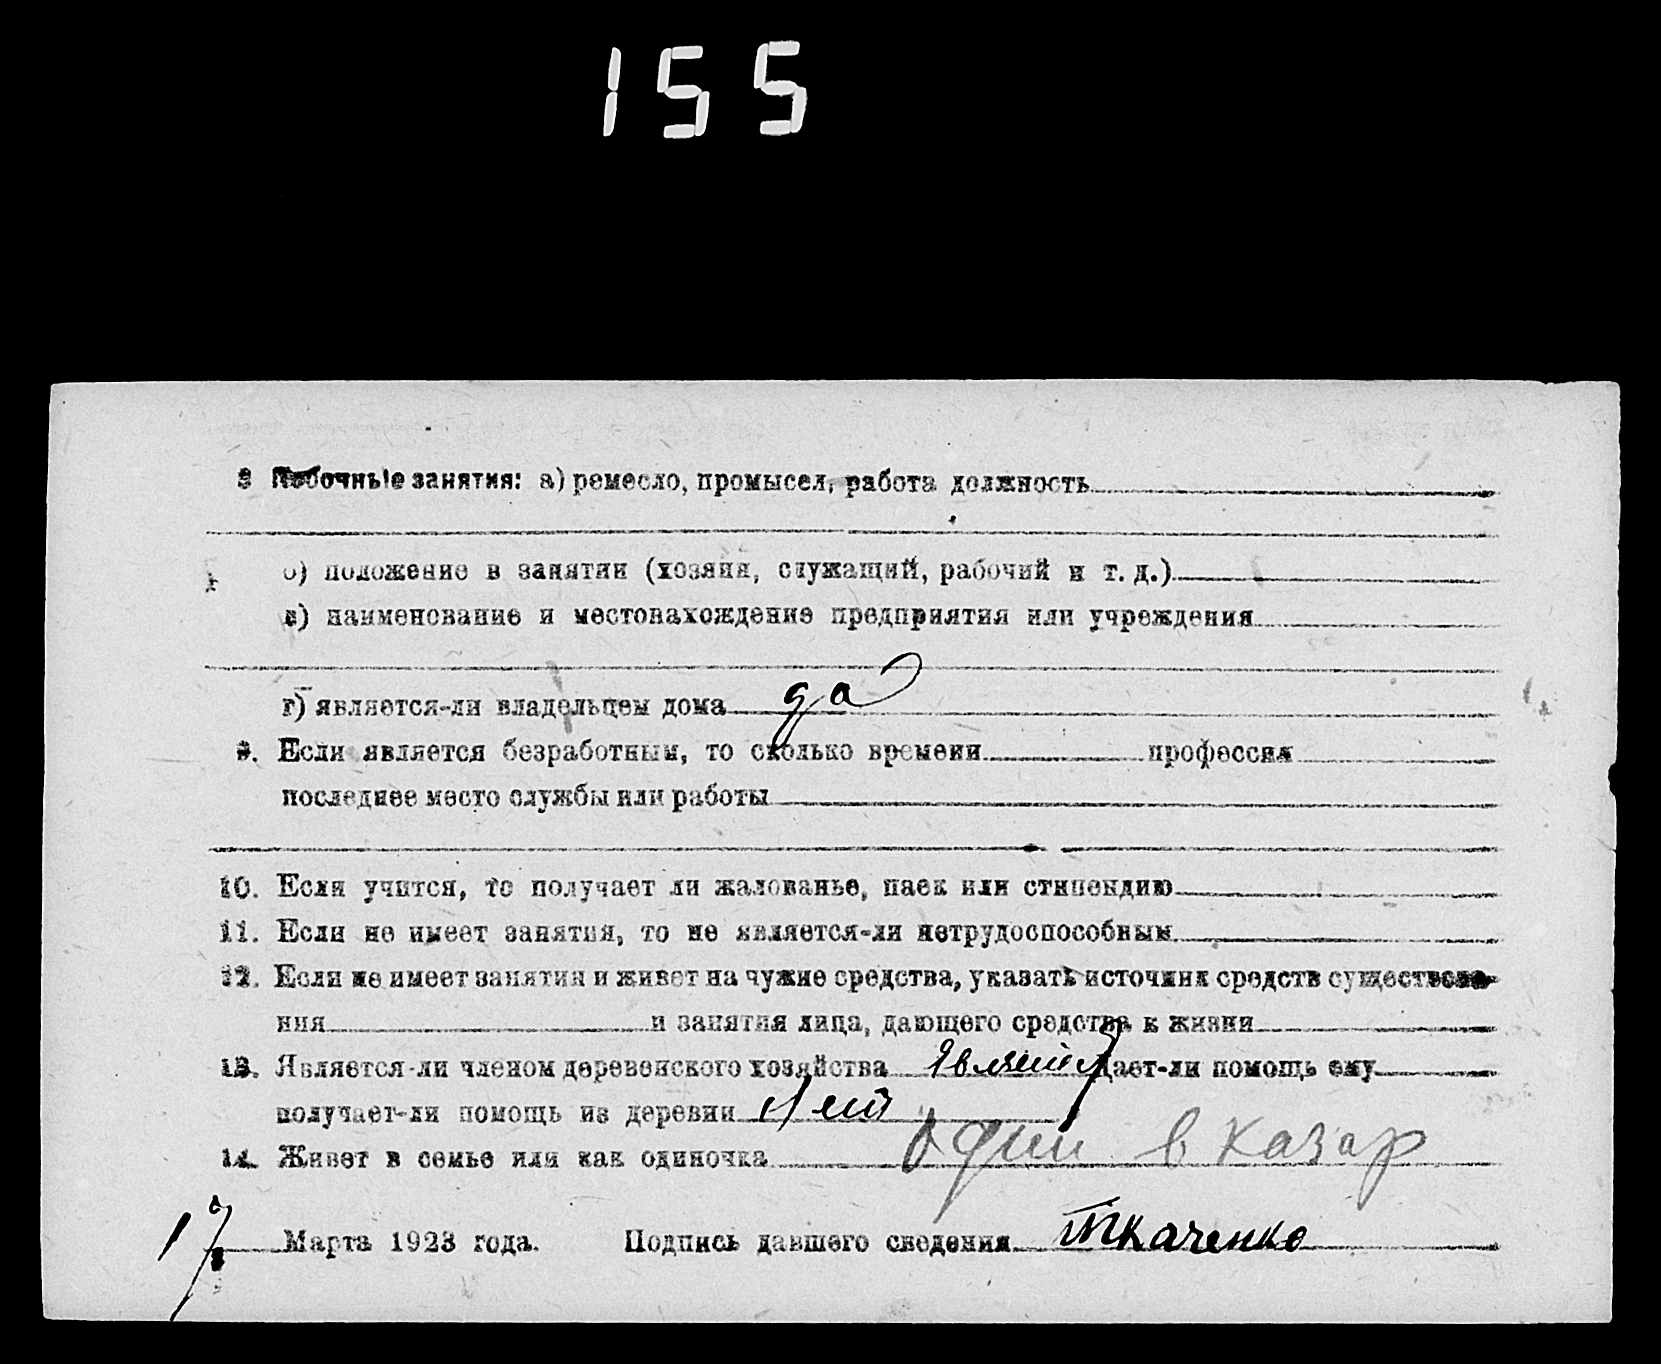 155
8 Побочные занятия: а) ремесло, промысел, работа должность
б) положение в занятии (хозяин, служащий, рабочий и т. д.)
в) наименование и местонахождение предприятия или учреждения
г) является-ли владельцем дома да
9. Если является безработным, то сколько времени профессия
последнее место службы или работы
10. Если учится, то получает ли жалованье, паек или стипендию
11. Если не имеет занятия, то не является-ли нетрудоспособным
12. Если не имеет занятия и живет на чужие средства, указать источник средств существова-
ния и занятия лица, дающего средства к жизни
13. Является-ли членом деревенского хозяйства Являюсь Дает-ли помощь ему
получает-ли помощь из деревни Нет
14. Живет в семье или как одиночка один в казар
17 Марта 1923 года. Подпись давшего сведения Ткаченко